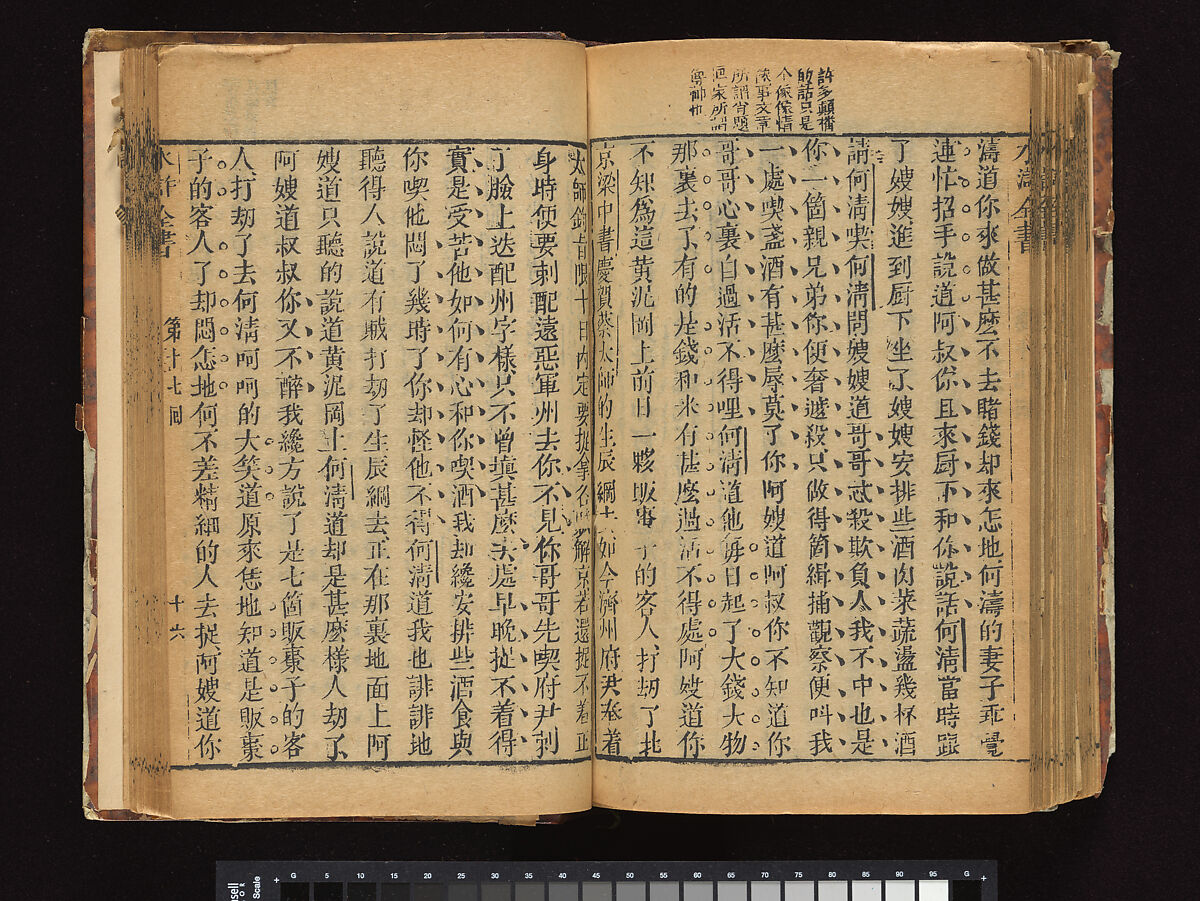 許多顛構
的話只是
个像像情
像事文章
所謂肖題
濤道你來做甚麼不去賭錢却來怎地何濤的妻子乖覺
連忙招手說道阿叔你且來厨下和你說話何清當時跟
了嫂嫂進到厨下坐了嫂嫂安排些酒肉菜蔬盪幾杯酒
請何清喫何清問嫂嫂道哥哥忒殺欺負人我不中也是
你一箇親兄弟你便奢遮殺只做得箇緝捕觀察便叫我
一處喫盞酒有甚麼辱莫了你阿嫂道阿叔你不知道你
哥哥心裏自過活不得哩何清道他每日起了大錢大物
那裏去了有的是錢和米有甚麼過活不得處阿嫂道你
不知爲這黃泥岡上前日一夥販棗子的客人打劫了北
京梁中書慶賀蔡太師的生辰綱去如今濟州府尹奉着
太師鈞旨限十日内定要捉拿各賊解京若還捉不着正
身時便要刺配遠惡軍州去你不見你哥哥先喫府尹刺
了臉上迭配州字樣只不曾填甚麼去處早晚捉不着得
實是受苦他如何有心和你喫酒我却纔安排些酒食與
你喫他悶了幾時了你却怪他不得何清道我也誹誹地
聽得人說道有賊打劫了生辰綱去正在那裏地面上阿
嫂道只聽的說道黃泥岡上何濤道却是甚麼樣人劫了
阿嫂道叔叔你又不醉我纔方說了是七箇販棗子的客
人打劫了去何淸呵呵的大笑道原來恁地知道是販棗
子的客人了却悶怎地何不差精細的人去捉阿嫂道你
水滸全書
第十七回
十六